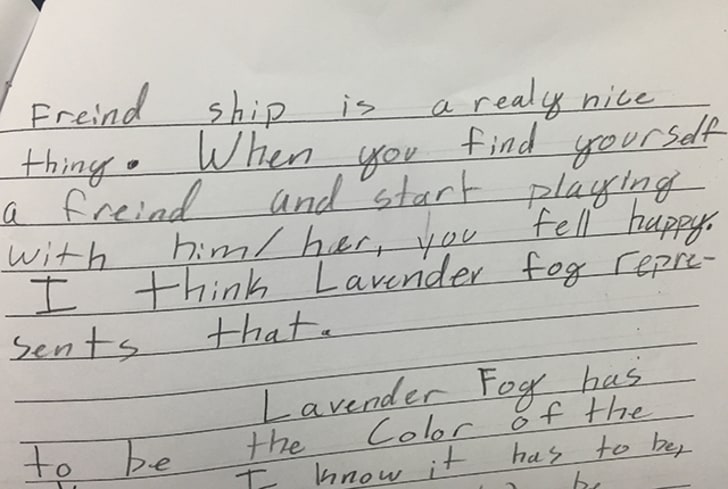 Freind ship is a realy nice
thing. When you find yourself
a freind and start playing
with him/her, you fell happy.
I think Lavender fog repre-
sents that.
Lavender Fog has
to be the Color of the
I know it has to be,
be